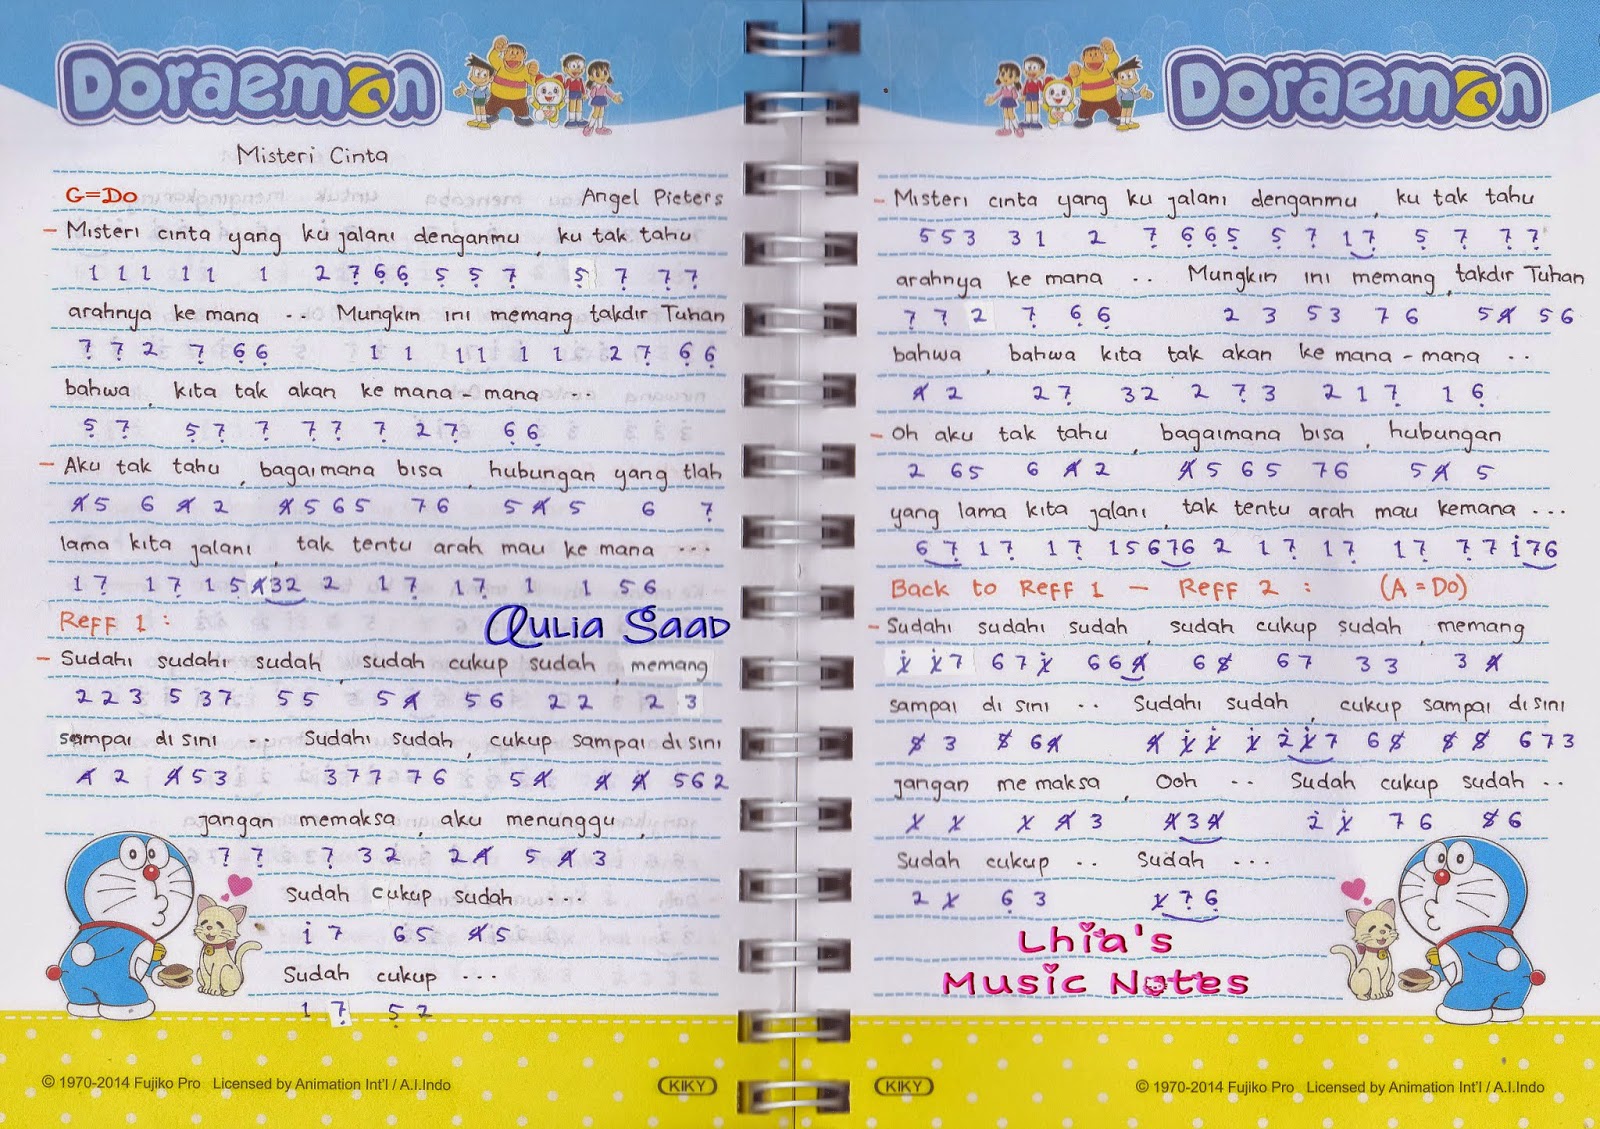 Doraemon
Misteri Cinta
G=Do Angel Pieters
- Misteri cinta yang ku jalani denganmu, ku tak tahu
1 1 1 1 1 1 2 7 6 6 5 5 7 5 7 7 7
arahnya ke mana .. Mungkin ini memang takdir Tuhan
7 7 2 7 6 6 1 1 1 1 1 1 2 7 6 6
bahwa, kita tak akan ke mana - mana ...
5 7 5 7 7 7 7 7 2 7 6 6
- Aku tak tahu, bagaimana bisa, hubungan yang tlah
4 5 6 4 2 4 5 6 5 7 6 5 4 5 6 7
lama kita jalani, tak tentu arah mau ke mana ...
1 7 1 7 1 5 4 3 2 2 1 7 1 7 1 1 5 6
Reff 1 :
Qulia Saad
- Sudahi sudahi sudah, sudah cukup sudah, memang
2 2 3 5 3 7 5 5 5 4 5 6 2 2 2 3
sampai di sini .. Sudahi sudah, cukup sampai di sini
4 2 4 5 3 3 7 7 7 6 5 4 4 4 5 6 2
jangan memaksa, aku menunggu,
7 7 7 3 2 2 4 5 4 3
Sudah cukup sudah ...
1 7 6 5 4 5
Sudah cukup ...
1 7 5 2
© 1970-2014 Fujiko Pro Licensed by Animation Int'l / A.I.Indo KIKY
Doraemon
- Misteri cinta yang ku jalani denganmu, ku tak tahu
5 5 3 3 1 2 7 6 6 5 5 7 1 7 5 7 7 7
arahnya ke mana .. Mungkin ini memang, takdir Tuhan
7 7 2 7 6 6 2 3 5 3 7 6 5 4 5 6
bahwa, bahwa kita tak akan ke mana - mana ..
4 2 2 7 3 2 2 7 3 2 1 7 1 6
- Oh aku tak tahu, bagaimana bisa, hubungan
2 6 5 6 4 2 4 5 6 5 7 6 5 4 5
yang lama kita jalani, tak tentu arah mau kemana ...
6 7 1 7 1 7 1 5 6 7 6 2 1 7 1 7 1 7 7 7 1 7 6
Back to Reff 1 - Reff 2 : (A = Do)
- Sudahi sudahi sudah, sudah cukup sudah, memang
1 1 7 6 7 1 6 6 4 6 5 6 7 3 3 3 4
sampai di sini .. Sudahi sudah, cukup sampai di sini
5 3 5 6 4 4 1 1 1 2 1 7 6 5 5 5 6 7 3
jangan memaksa, Ooh .. Sudah cukup sudah ..
1 1 1 4 3 4 3 4 2 1 7 6 5 6
Sudah cukup .. Sudah ...
2 1 6 3 1 7 6
Lhia's
Music Notes
KIKY © 1970-2014 Fujiko Pro Licensed by Animation Int'l / A.I.Indo